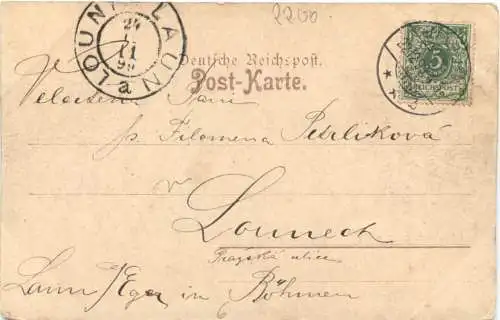 2200
LOUNY LAUN
24
11
98
a
Deutsche Reichspost.
Post-Karte.
5
REICHSPOST
Pani
Filomena Petrliková
v
Lounech
Pražská ulice
Laun a/Eger in Böhmen